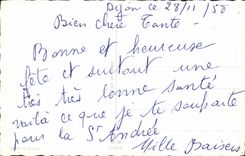 Dijon ce 28/11/58
Bien chère Tante -
Bonne et heureuse
fête et surtout une
très très bonne santé
voilà ce que je te souhaite
pour la St Andrée
Mille Baisers